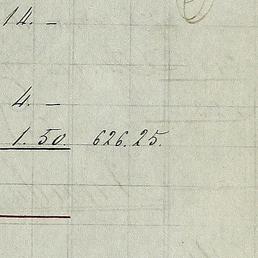 14. —
4. —
1. 50. 626. 25.